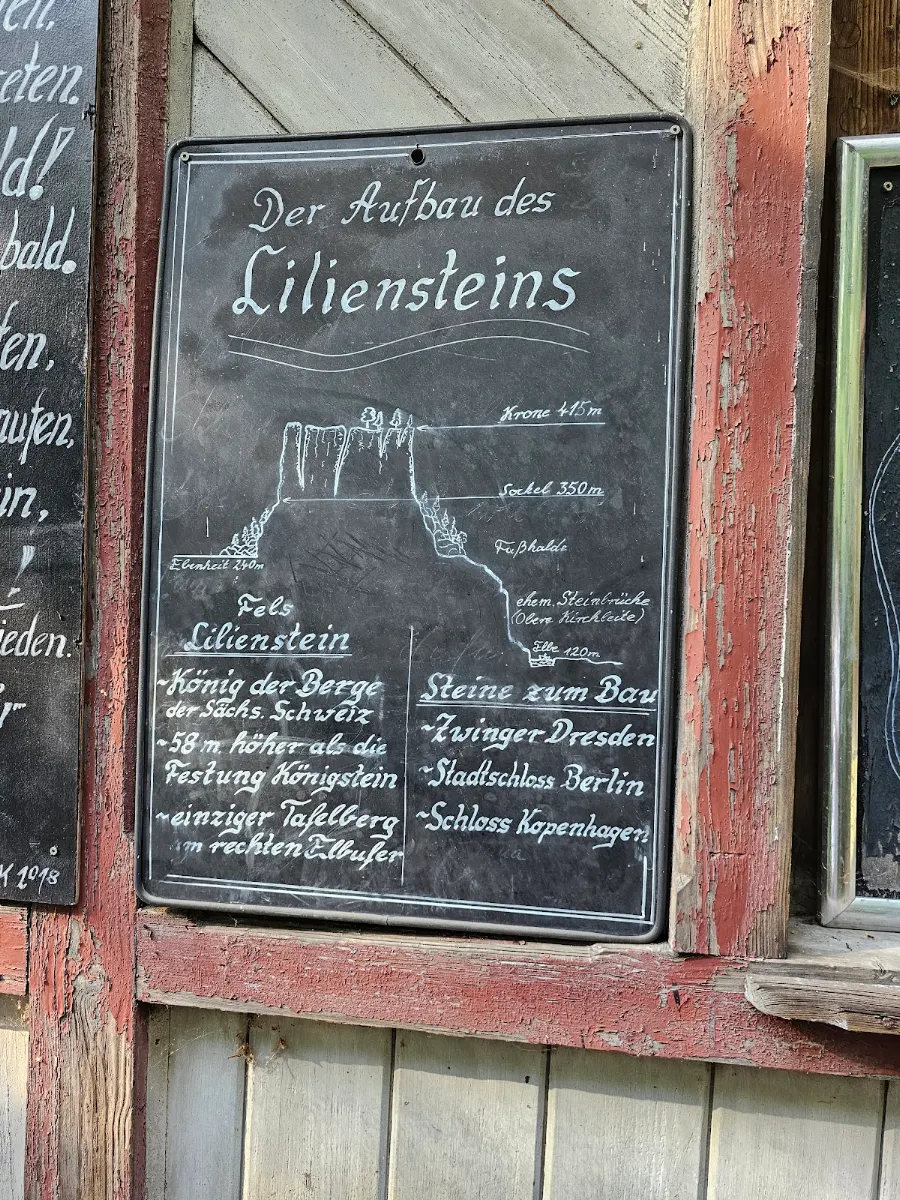 eten.
ld!
bald.
ten,
aufen,
in,
!
ieden.
r
K 2018
Der Aufbau des
Liliensteins
Krone 415 m
Sockel 350 m
Fußhalde
Ebenheit 240m
ehem. Steinbrüche
(Obere Kirchleite)
Elbe 120m
Fels
Lilienstein
~König der Berge
der Sächs. Schweiz
~58 m höher als die
Festung Königstein
~einziger Tafelberg
am rechten Elbufer
Steine zum Bau
~Zwinger Dresden
~Stadtschloss Berlin
~Schloss Kopenhagen